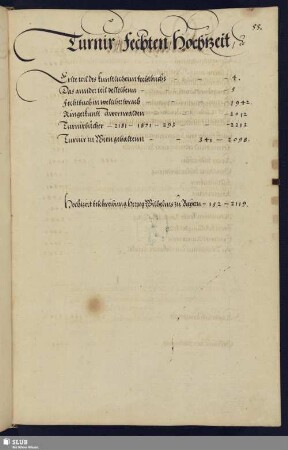 55.
Turnir Fechten Hochzeit
Erste teil des kunstlichenn fechtbuchs - - 4.
Das annder teil desselbenn - - 5
Fechtbuch in welscher sprach - - 1942
Ringerkunst - - 2012
Turnirbücher - 2181 - 1871 - 293 - 2212
Turnir in Wien gehaltenn - - 342 - 2098.
Hochzeit beschreibung Hertzog Wilhelms in Bayrn - 152 - 2119.
SLUB